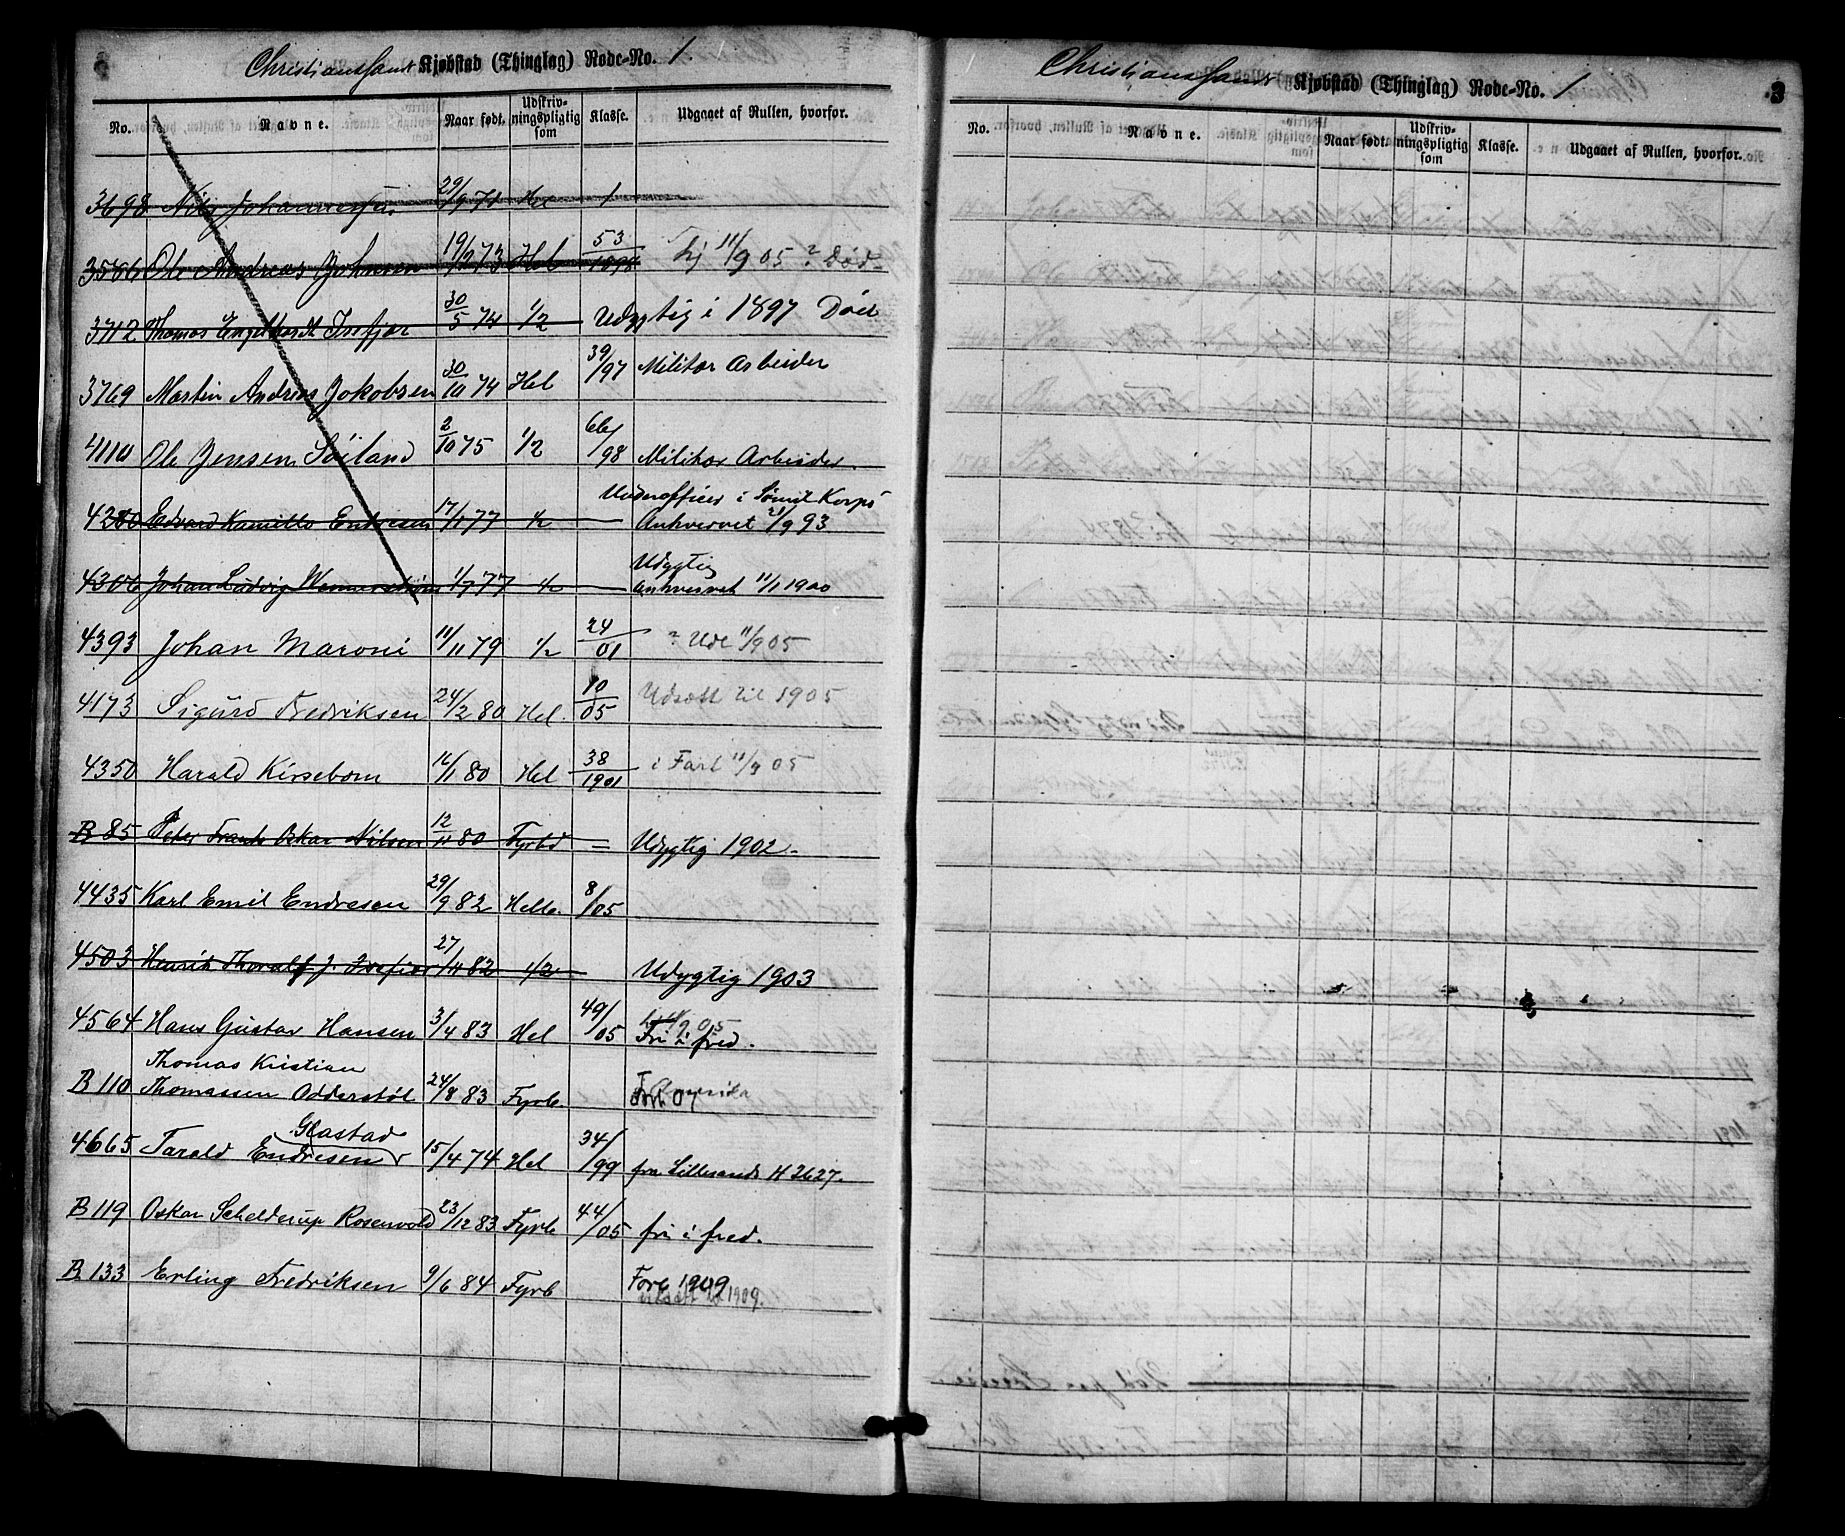 Christianssand Kjøbstad (Thinglag) Rode-No. 1.
No. Navne. Naar født. Udskriv-ningspligtig som Klasse. Udgaaet af Rullen, hvorfor.
3698 Nils 29/9 71 Hel 1
3586 Ole Andreas Johnsen 19/2 73 Hel 53/1898 hj 11/9 05 ? Død
3712 Thomas Engelhardt Isefjær 30/5 74 1/2 Udygtig i 1897 Død
3769 Martin Andreas Jakobsen 30/10 74 Hel 39/97 Militær Arbeider
4110 Ole Jensen Søiland 2/10 75 1/2 66/98 Militær Arbeider.
Underofficer i Sømil Korps
4280 Edvard Kamillo Endresen 17/1 77 1/2 — Anhvervet 21/9 93
Udygtig
4306 Johan Ludvig 1/7 77 1/2 — anhvervet 11/1 1900
4393 Johan Maroni 11/11 79 1/2 24/01 ? Ude 11/9 05
4173 Sigurd Fredriksen 24/2 80 Hel. 10/05 Udsatt til 1905
4350 Harald Kirsebom 12/1 80 Hel 38/1901 i Fart 11/9 05
B 85 Peter Frants Oskar Nilsen 12/11 80 Fyrbd — Udygtig 1902.
4435 Karl Emil Endresen 29/9 82 Helb. 8/05
4503 Henrik Thoralf J. Isefjær 27/11 82 1/2 Udygtig 1903
4564 Hans Gustav Hansen 3/4 83 Hel 49/05 Fri i fred.
Thomas Kristian
B 110 Thomassen Odderstøl 24/8 83 Fyrb.
Glastad
4665 Tarald Endresen 15/4 74 Hel 34/99 fra Lillesand H 2627.
B 119 Oskar Schelderup Rosenvold 23/12 83 Fyrb 44/05 fri i fred.
B. 133 Erling Fredriksen 9/6 84 Fyrb Forb 1909
udsatt til 1909.
Christianssand Kjøbstad (Thinglag) Rode-No. 1
3
No. Navne. Naar født. Udskriv-ningspligtig som Klasse. Udgaaet af Rullen, hvorfor.